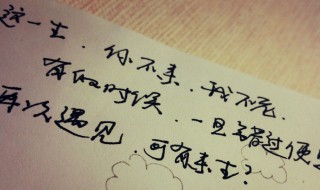 这一生.你不来.我不老.
有的时候.一旦错过便
再次遇见.可有来生?